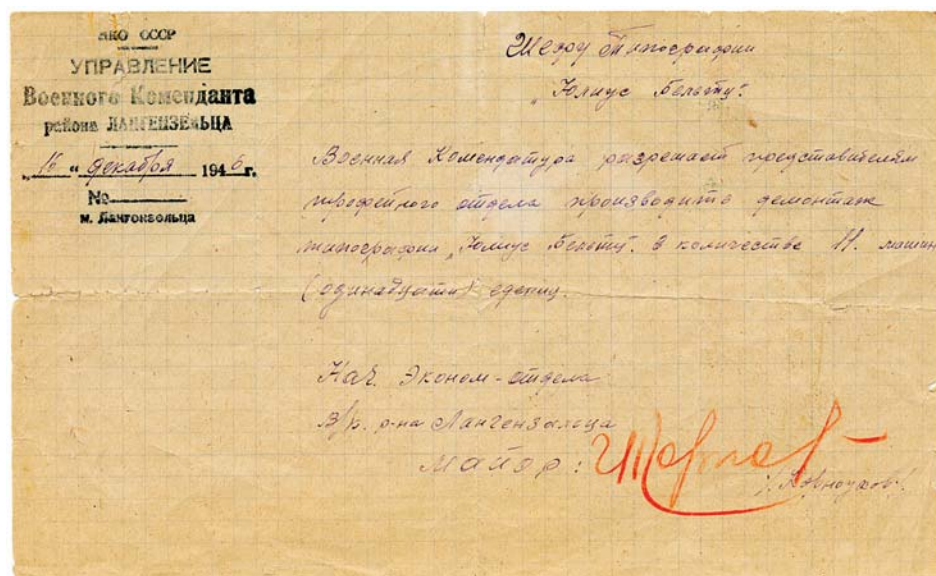 НКО СССР
УПРАВЛЕНИЕ
Военного Коменданта
района ЛАНГЕНЗЕЛЬЦА
„16" декабря 1946г.
№
м. Лангонзольца
Шефу Типографии
„Юлиус Бельтц".
Военная Комендатура разрешает представителям
трофейного отдела производить демонтаж
типографии „Юлиус Бельтц". в количестве 11. машин
(одинадцати) едениц.
Нач. Эконом-отдела
В/к. р-на Лангензальца
майор: